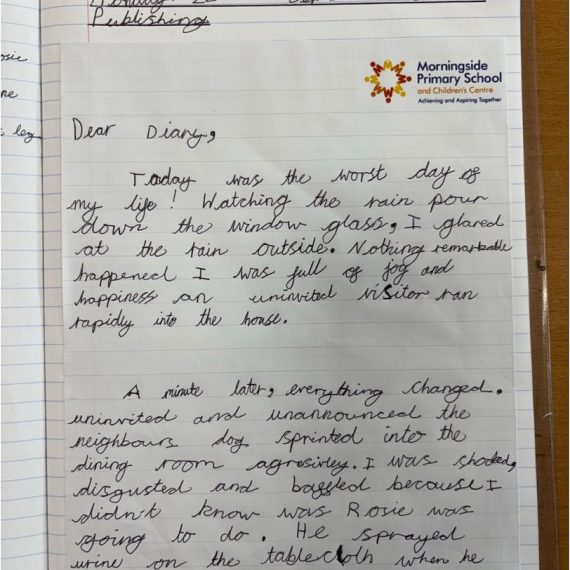 Publishing
osie
ne
leg
Morningside
Primary School
and Children's Centre
Achieving and Aspiring Together
Dear Diary,
Today was the worst day of
my life! Watching the rain pour
down the window glass, I glared
at the rain outside. Nothing remarkable
happened I was full of joy and
happiness an uninvited visitor ran
rapidly into the house.
A minute later, everything changed.
uninvited and unannounced the
neighbours dog sprinted into the
dining room agresivley. I was shocked,
disgusted and baffled because I
didn't know was Rosie was
going to do. He sprayed
urine on the tablecloth when he